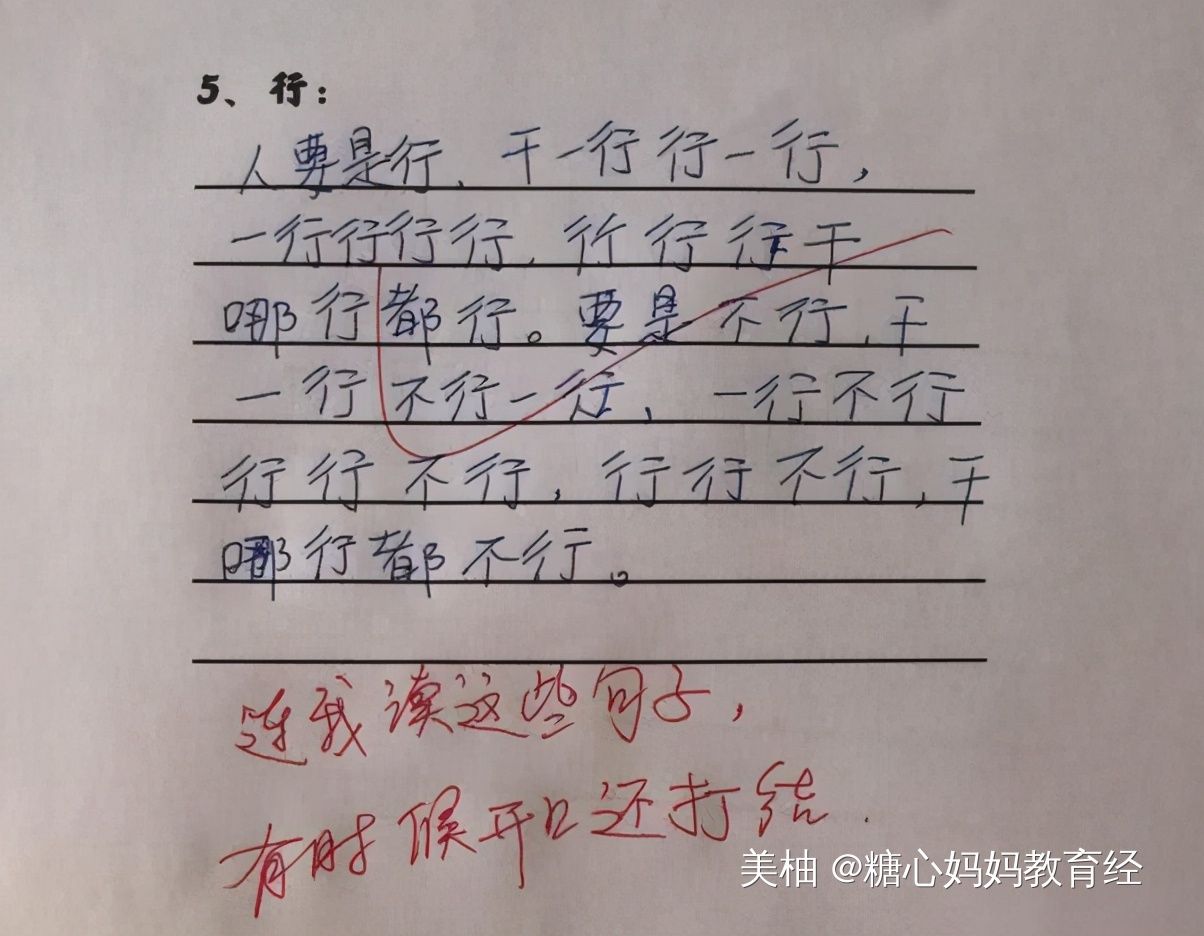 5、行：
人要是行，干一行行一行，
一行行行行，行行行干
哪行都行。要是不行，干
一行不行一行，一行不行
行行不行，行行不行，干
哪行都不行。
连我读这些句子，
有时候开口还打结.
美柚 @糖心妈妈教育经